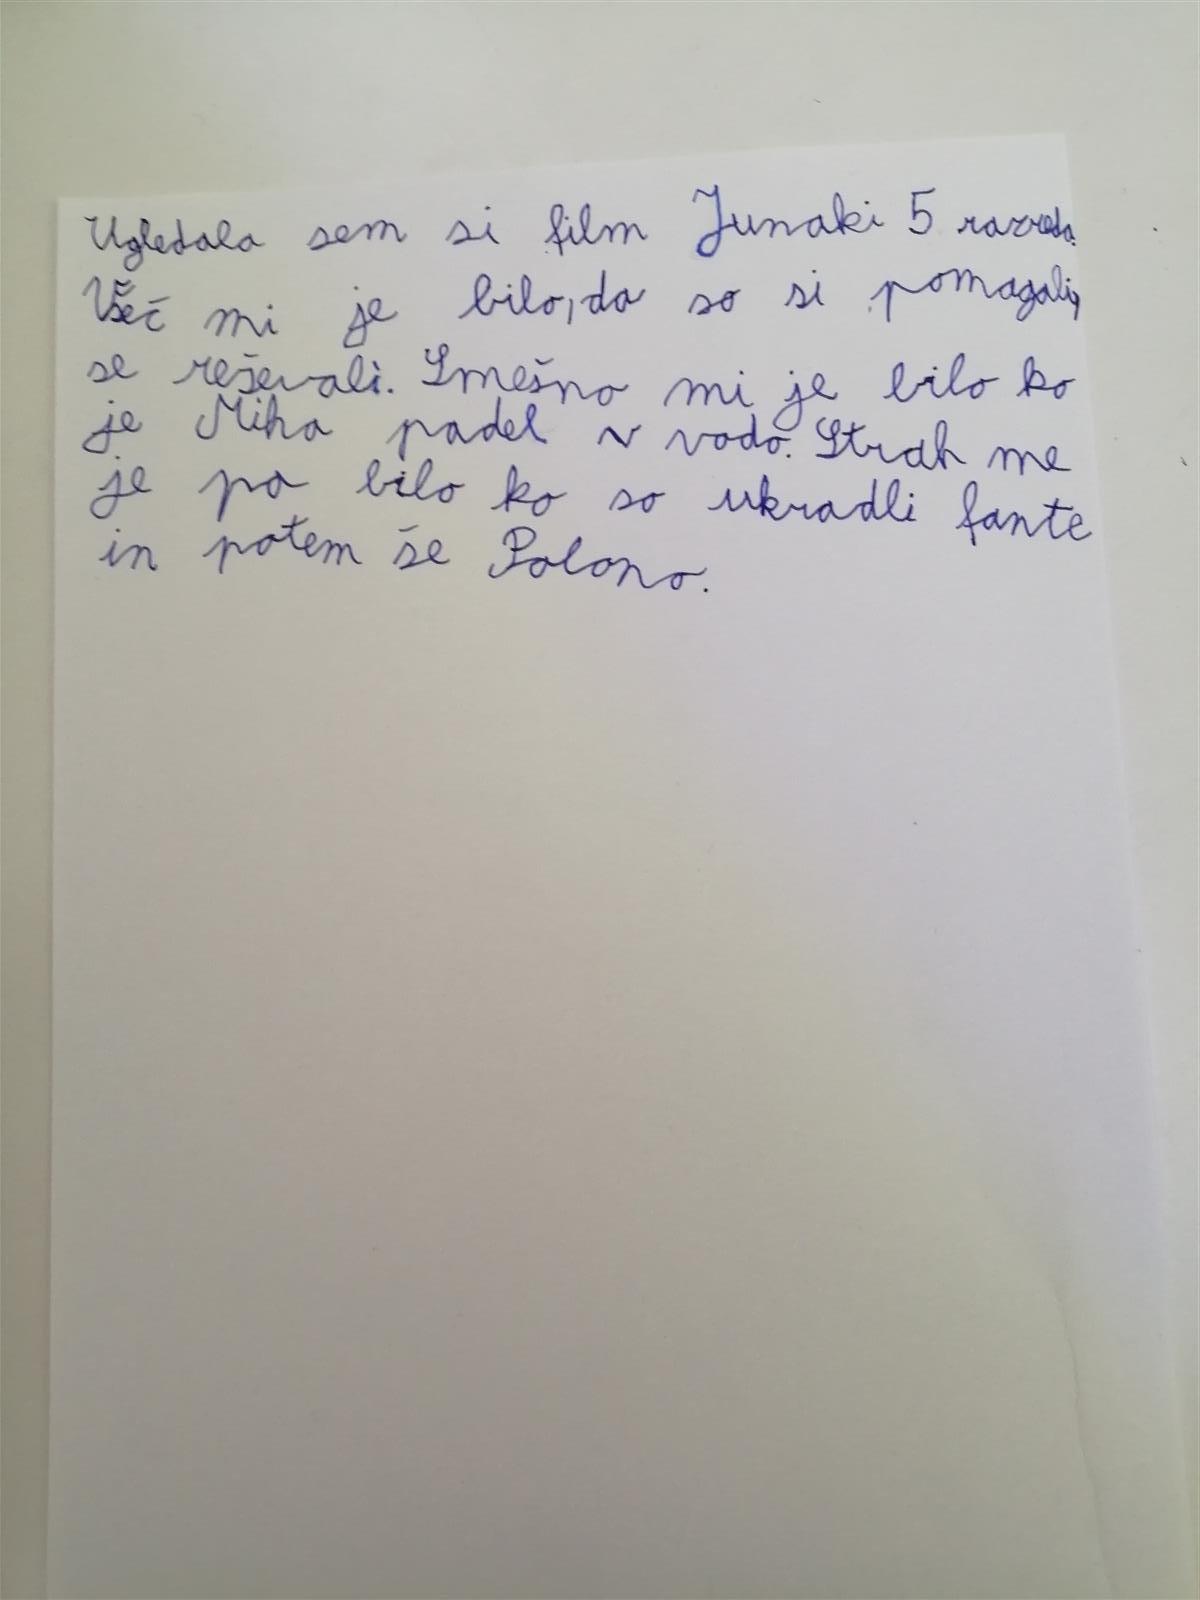 Ugledala sem si film Junaki 5 razreda.
Všeč mi je bilo, da so si pomagali,
se reševali. Smešno mi je bilo ko
je Miha padel v vodo. Strah me
je pa bilo ko so ukradli fante
in potem še Polono.